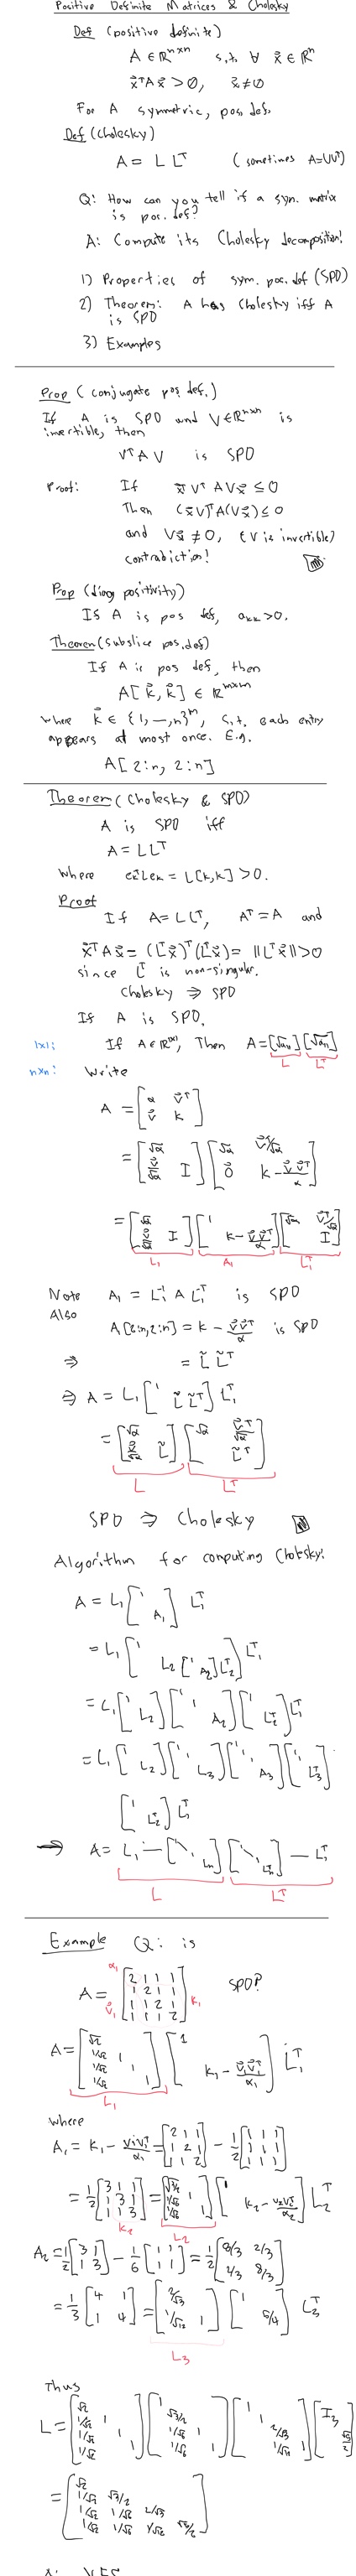 Positive Definite Matrices & Cholesky
Def (positive definite)
A ∈ ℝ^{n×n} s.t. ∀ x⃗ ∈ ℝ^n
x⃗^T A x⃗ > 0, x⃗ ≠ 0
For A symmetric, pos. def.
Def (Cholesky)
A = L L^T (sometimes A=UU^T)
Q: How can you tell if a sym. matrix
is pos. def?
A: Compute its Cholesky decomposition!
1) Properties of sym. pos. def (SPD)
2) Theorem: A has Cholesky iff A
is SPD
3) Examples
Prop (conjugate pos. def.)
If A is SPD and V ∈ ℝ^{n×n} is
invertible, then
V^T A V is SPD
Proof: If x⃗ V^T A V x⃗ ≤ 0
Then (x⃗V)^T A(Vx⃗) ≤ 0
and Vx⃗ ≠ 0, (V is invertible)
contradiction!
Prop (diag positivity)
If A is pos def, a_{kk} > 0.
Theorem (subslice pos. def)
If A is pos def, then
A[k⃗, k⃗] ∈ ℝ^{m×m}
where k⃗ ∈ {1,—,n}^m, s.t. each entry
appears at most once. E.g.
A[2:n, 2:n]
Theorem (Cholesky & SPD)
A is SPD iff
A = L L^T
where e_k^T L e_k = L[k,k] > 0.
Proof
If A = L L^T, A^T = A and
x⃗^T A x⃗ = (L^T x⃗)^T (L^T x⃗) = ||L^T x⃗|| > 0
since L^T is non-singular.
Cholesky ⇒ SPD
If A is SPD,
1x1: If A ∈ ℝ^{1x1}, Then A = [√a₁₁] [√a₁₁]
L L^T
nxn: Write
A = [α v⃗^T; v⃗ K]
= [√α; v⃗/√α I] [√α v⃗^T/√α; 0⃗ K - v⃗v⃗^T/α]
= [√α; v⃗/√α I] [1; K - v⃗v⃗^T/α] [√α v⃗^T/√α; I]
L₁ A₁ L₁^T
Note A₁ = L₁^{-1} A L₁^{-T} is SPD
Also
A[2:n,2:n] = K - v⃗v⃗^T/α is SPD
⇒ = L̃ L̃^T
⇒ A = L₁ [1; L̃ L̃^T] L₁^T
= [√α; v⃗/√α L̃] [√α v⃗^T/√α; L̃^T]
L L^T
SPD ⇒ Cholesky
Algorithm for computing Cholesky:
A = L₁ [1; A₁] L₁^T
= L₁ [1; L₂ [1; A₂] L₂^T] L₁^T
= L₁ [1; L₂] [1; 1; A₂] [1; L₂^T] L₁^T
= L₁ [1; L₂] [1; 1; L₃] [1; 1; A₃] [1; 1; L₃^T]
[1; L₂^T] L₁^T
→ A = L₁ — [⋱ L_n] [⋱ L_n^T] — L₁^T
L L^T
Example Q: is
A = [2 1 1 1; 1 2 1 1; 1 1 2 1; 1 1 1 2] SPD?
α₁ v⃗₁ K₁
A = [√2; 1/√2 1; 1/√2 1; 1/√2 1] [1; K₁ - v⃗₁v⃗₁^T/α₁] L₁^T
L₁
where
A₁ = K₁ - v₁v₁^T/α₁ = [2 1 1; 1 2 1; 1 1 2] - 1/2 [1 1 1; 1 1 1; 1 1 1]
= 1/2 [3 1 1; 1 3 1; 1 1 3] = [√3/2; 1/√6 1; 1/√6 1] [1; K₂ - v₂v₂^T/α₂] L₂^T
K₂ L₂
A₂ = 1/2 [3 1; 1 3] - 1/6 [1 1; 1 1] = 1/2 [8/3 2/3; 2/3 8/3]
= 1/3 [4 1; 1 4] = [2/√3; 1/√12 1] [1; 5/4] L₃^T
L₃
Thus
L = [√2; 1/√2 1; 1/√2 1; 1/√2 1] [1; √3/2; 1/√6 1; 1/√6 1] [1; 1; 2/√3; 1/√12 1] [I₃; √5/2]
= [√2; 1/√2 √3/2; 1/√2 1/√6 2/√3; 1/√2 1/√6 1/√12 √5/2]
A: YES